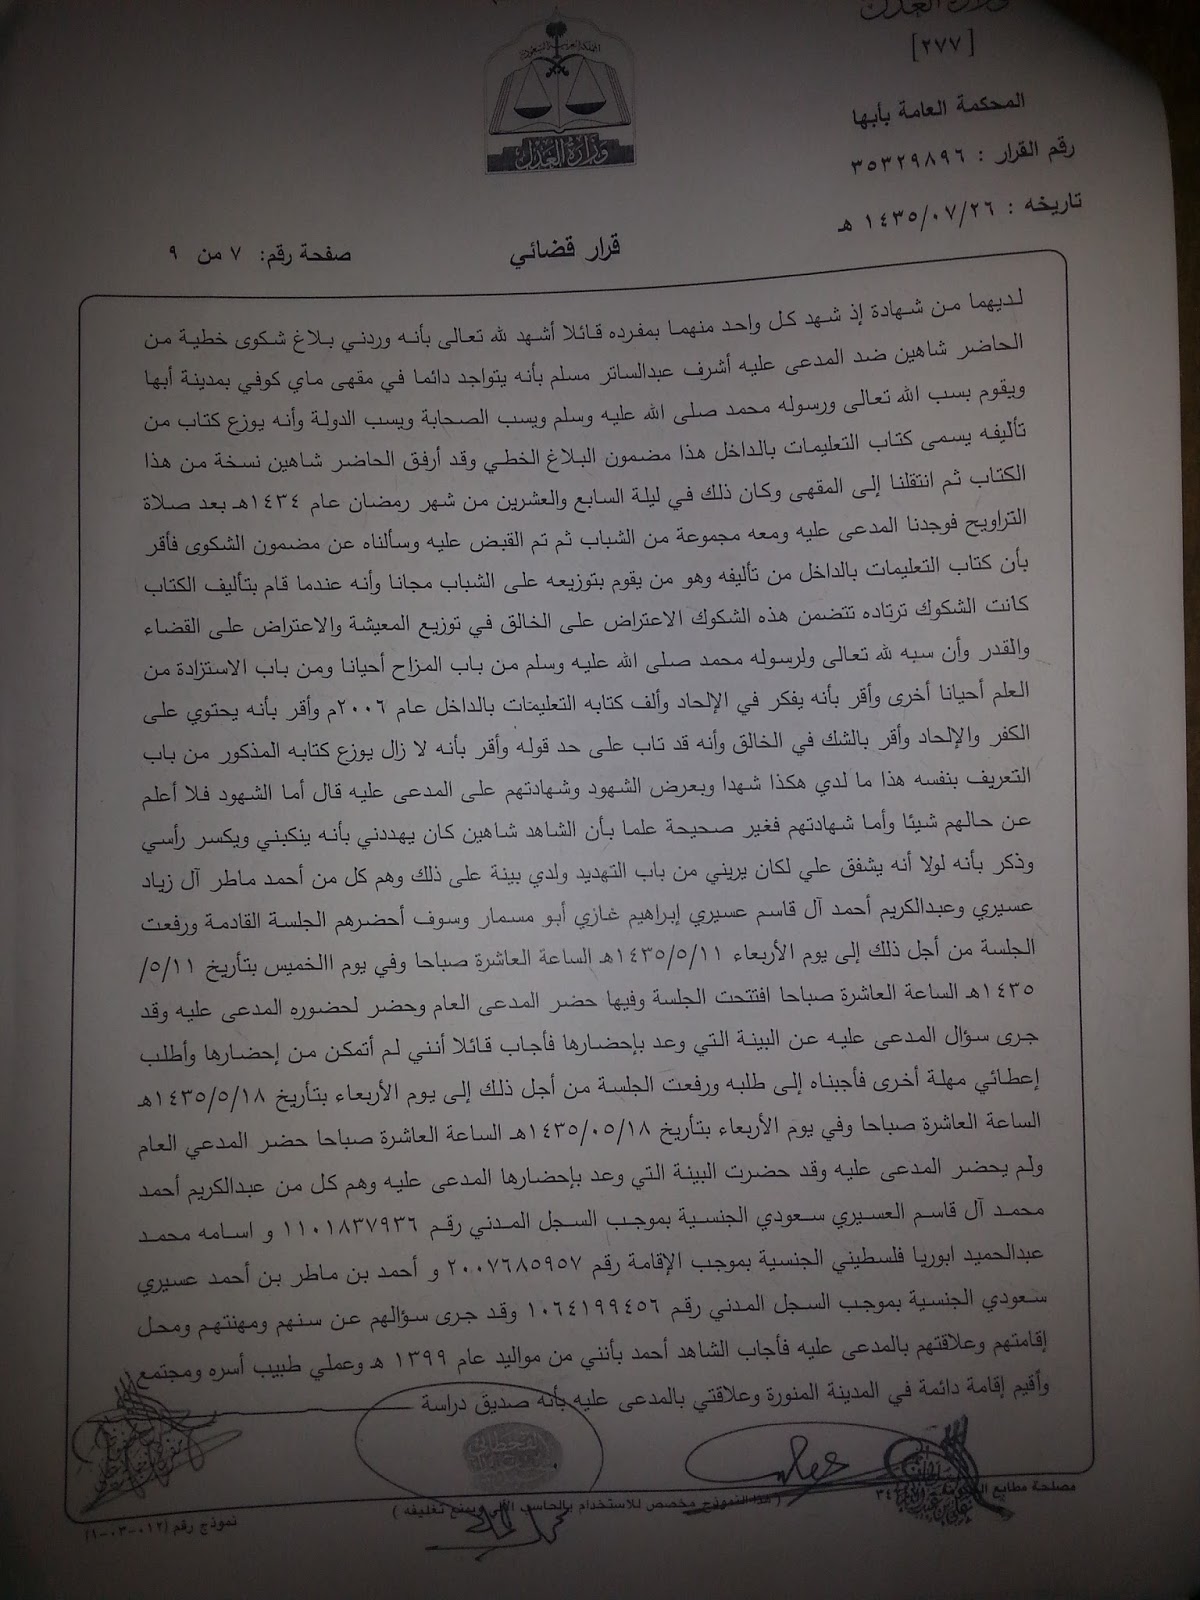 وزارة العدل
[٢٧٧]
المملكة العربية السعودية
وزارة العدل
المحكمة العامة بأبها
رقم القرار : ٣٥٣٢٩٨٩٦
تاريخه : ١٤٣٥/٠٧/٢٦ هـ
قرار قضائي
صفحة رقم: ٧ من ٩
لديهما من شهادة إذ شهد كل واحد منهما بمفرده قائلا أشهد لله تعالى بأنه وردني بلاغ شكوى خطية من
الحاضر شاهين ضد المدعى عليه أشرف عبدالساتر مسلم بأنه يتواجد دائما في مقهى ماي كوفي بمدينة أبها
ويقوم بسب الله تعالى ورسوله محمد صلى الله عليه وسلم ويسب الصحابة ويسب الدولة وأنه يوزع كتاب من
تأليفه يسمى كتاب التعليمات بالداخل هذا مضمون البلاغ الخطي وقد أرفق الحاضر شاهين نسخة من هذا
الكتاب ثم انتقلنا إلى المقهى وكان ذلك في ليلة السابع والعشرين من شهر رمضان عام ١٤٣٤هـ بعد صلاة
التراويح فوجدنا المدعى عليه ومعه مجموعة من الشباب ثم تم القبض عليه وسألناه عن مضمون الشكوى فأقر
بأن كتاب التعليمات بالداخل من تأليفه وهو من يقوم بتوزيعه على الشباب مجانا وأنه عندما قام بتأليف الكتاب
كانت الشكوك ترتاده تتضمن هذه الشكوك الاعتراض على الخالق في توزيع المعيشة والاعتراض على القضاء
والقدر وأن سبه لله تعالى ولرسوله محمد صلى الله عليه وسلم من باب المزاح أحيانا ومن باب الاستزادة من
العلم أحيانا أخرى وأقر بأنه يفكر في الإلحاد وألف كتابه التعليمات بالداخل عام ٢٠٠٦م وأقر بأنه يحتوي على
الكفر والإلحاد وأقر بالشك في الخالق وأنه قد تاب على حد قوله وأقر بأنه لا زال يوزع كتابه المذكور من باب
التعريف بنفسه هذا ما لدي هكذا شهدا وبعرض الشهود وشهادتهم على المدعى عليه قال أما الشهود فلا أعلم
عن حالهم شيئا وأما شهادتهم فغير صحيحة علما بأن الشاهد شاهين كان يهددني بأنه ينكبني ويكسر رأسي
وذكر بأنه لولا أنه يشفق علي لكان يريني من باب التهديد ولدي بينة على ذلك وهم كل من أحمد ماطر آل زياد
عسيري وعبدالكريم أحمد آل قاسم عسيري إبراهيم غازي أبو مسمار وسوف أحضرهم الجلسة القادمة ورفعت
الجلسة من أجل ذلك إلى يوم الأربعاء ١٤٣٥/٥/١١هـ الساعة العاشرة صباحا وفي يوم االخميس بتأريخ ٥/١١/
١٤٣٥هـ الساعة العاشرة صباحا افتتحت الجلسة وفيها حضر المدعى العام وحضر لحضوره المدعى عليه وقد
جرى سؤال المدعى عليه عن البينة التي وعد بإحضارها فأجاب قائلا أنني لم أتمكن من إحضارها وأطلب
إعطائي مهلة أخرى فأجبناه إلى طلبه ورفعت الجلسة من أجل ذلك إلى يوم الأربعاء بتأريخ ١٤٣٥/٥/١٨هـ
الساعة العاشرة صباحا وفي يوم الأربعاء بتأريخ ١٤٣٥/٠٥/١٨هـ الساعة العاشرة صباحا حضر المدعي العام
ولم يحضر المدعى عليه وقد حضرت البينة التي وعد بإحضارها المدعى عليه وهم كل من عبدالكريم أحمد
محمد آل قاسم العسيري سعودي الجنسية بموجب السجل المدني رقم ١١٠١٨٣٧٩٣٦ و اسامه محمد
عبدالحميد ابوريا فلسطيني الجنسية بموجب الإقامة رقم ٢٠٠٧٦٨٥٩٥٧ و أحمد بن ماطر بن أحمد عسيري
سعودي الجنسية بموجب السجل المدني رقم ١٠٦٤١٩٩٤٥٦ وقد جرى سؤالهم عن سنهم ومهنتهم ومحل
إقامتهم وعلاقتهم بالمدعى عليه فأجاب الشاهد أحمد بأنني من مواليد عام ١٣٩٩ هـ وعملي طبيب أسره ومجتمع
وأقيم إقامة دائمة في المدينة المنورة وعلاقتي بالمدعى عليه بأنه صديق دراسة
القحطاني
مصلحة مطابع
( هذا النموذج مخصص للاستخدام بالحاسب الآلي ويمنع تغليفه )
نموذج رقم (١٢-٠٣-٠١)